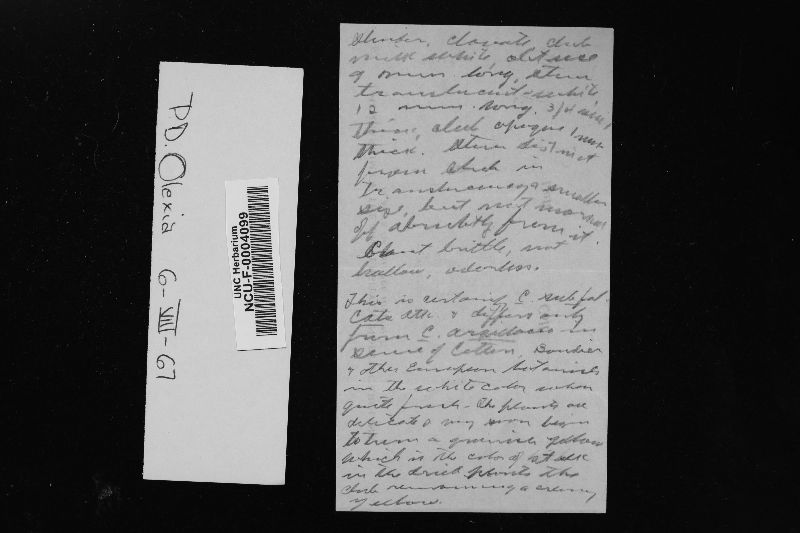 P.D. Olexia 6-VIII-67
UNC Herbarium
NCU-F-0004099
Slender, clavate, club
milk white, obtuse
9 mm long, stem
translucent-white
12 mm. long. 3/4 mm
thick, club opaque 1 mm
thick. Stem distinct
from club in
translucency & smaller
size, but not marked
off absolutely from it.
Plant brittle, not
hollow, odorless.
This is certainly C. subfal-
cata Atk. & differs only
from C. argillacea in
sense of Cotton, Boudier
& other European botanists
in the white color when
quite fresh. The plants are
delicate & may soon begin
to turn a greenish yellow
which is the color of stalk
in the dried plants the
club remaining a creamy
yellow.